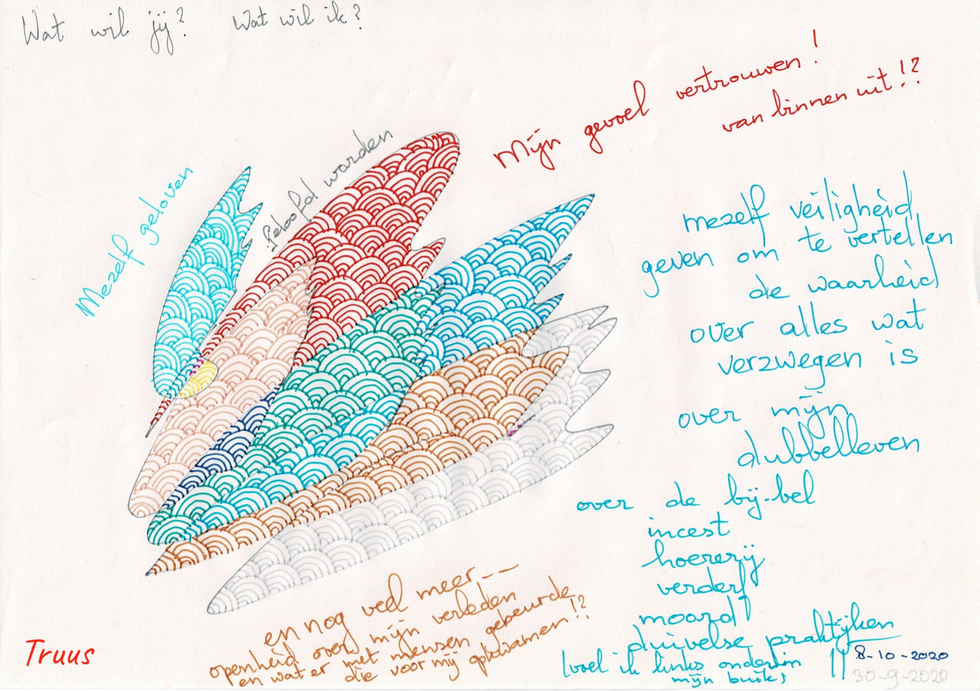 Wat wil jij? Wat wil ik?
Mijn gevoel vertrouwen!
van binnen uit!?
Mezelf geloven
geloofd worden
mezelf veiligheid
geven om te vertellen
de waarheid
over alles wat
verzwegen is
over mijn
dubbelleven
over de bij-bel
incest
hoererij
verderf
moord
duivelse praktijken
(voel ik links onderin
mijn buik)
en nog veel meer --
openheid over mijn verleden
en wat er met mensen gebeurde
die voor mij opkwamen!?
Truus
8-10-2020
30-9-2020